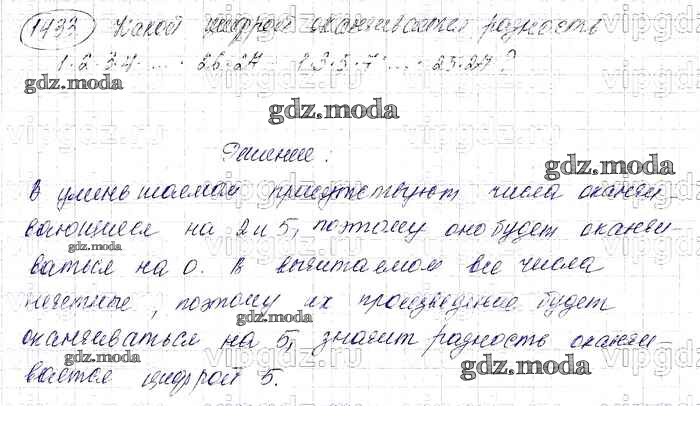 1433 Какой цифрой оканчивается разность
1·2·3·4·...·26·27 - 1·3·5·7·...·25·27?
gdz.moda
gdz.moda
Решение.
gdz.moda
В уменьшаемом присутствуют числа оканчи
вающиеся на 2 и 5, поэтому оно будет оканчи-
gdz.moda
ваться на 0. В вычитаемом все числа
нечетные, поэтому их произведение будет
gdz.moda
оканчиваться на 5, значит разность оканчи
gdz.moda
вается цифрой 5.
gdz.moda